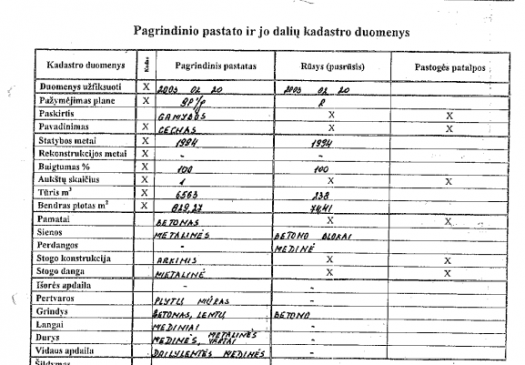 Pagrindinio pastato ir jo dalių kadastro duomenys
Kadastro duomenys Kodas Pagrindinis pastatas Rūsys (pusrūsis) Pastogės patalpos
Duomenys užfiksuoti X 2003 02 20 2003 02 20
Pažymėjimas plane X 9P1/p R
Paskirtis GAMYBOS X X
Pavadinimas X CECHAS X X
Statybos metai X 1994 1994
Rekonstrukcijos metai X - -
Baigtumas % X 100 100
Aukštų skaičius X 1 X X
Tūris m³ X 6563 238
Bendras plotas m² X 829,27 74,41
Pamatai BETONAS X X
Sienos METALINĖS BETONO BLOKAI
Perdangos - MEDINĖ
Stogo konstrukcija ARKINIS X X
Stogo danga METALINĖ X X
Išorės apdaila - -
Pertvaros PLYTŲ MŪRAS -
Grindys BETONAS, LENTŲ BETONO
Langai MEDINIAI -
Durys MEDINĖS, METALINĖS VARTAI -
Vidaus apdaila DAILYLENTĖS MEDINĖS -
Šildymas